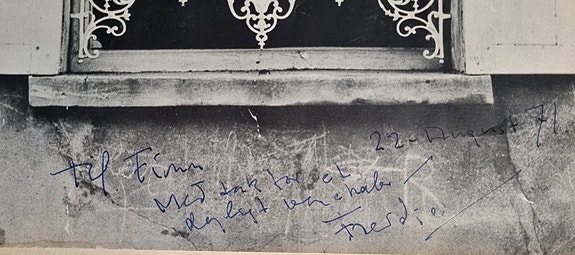 22 - August 71.
Til Finn
Med tak for et
dejligt venskab
Freddie